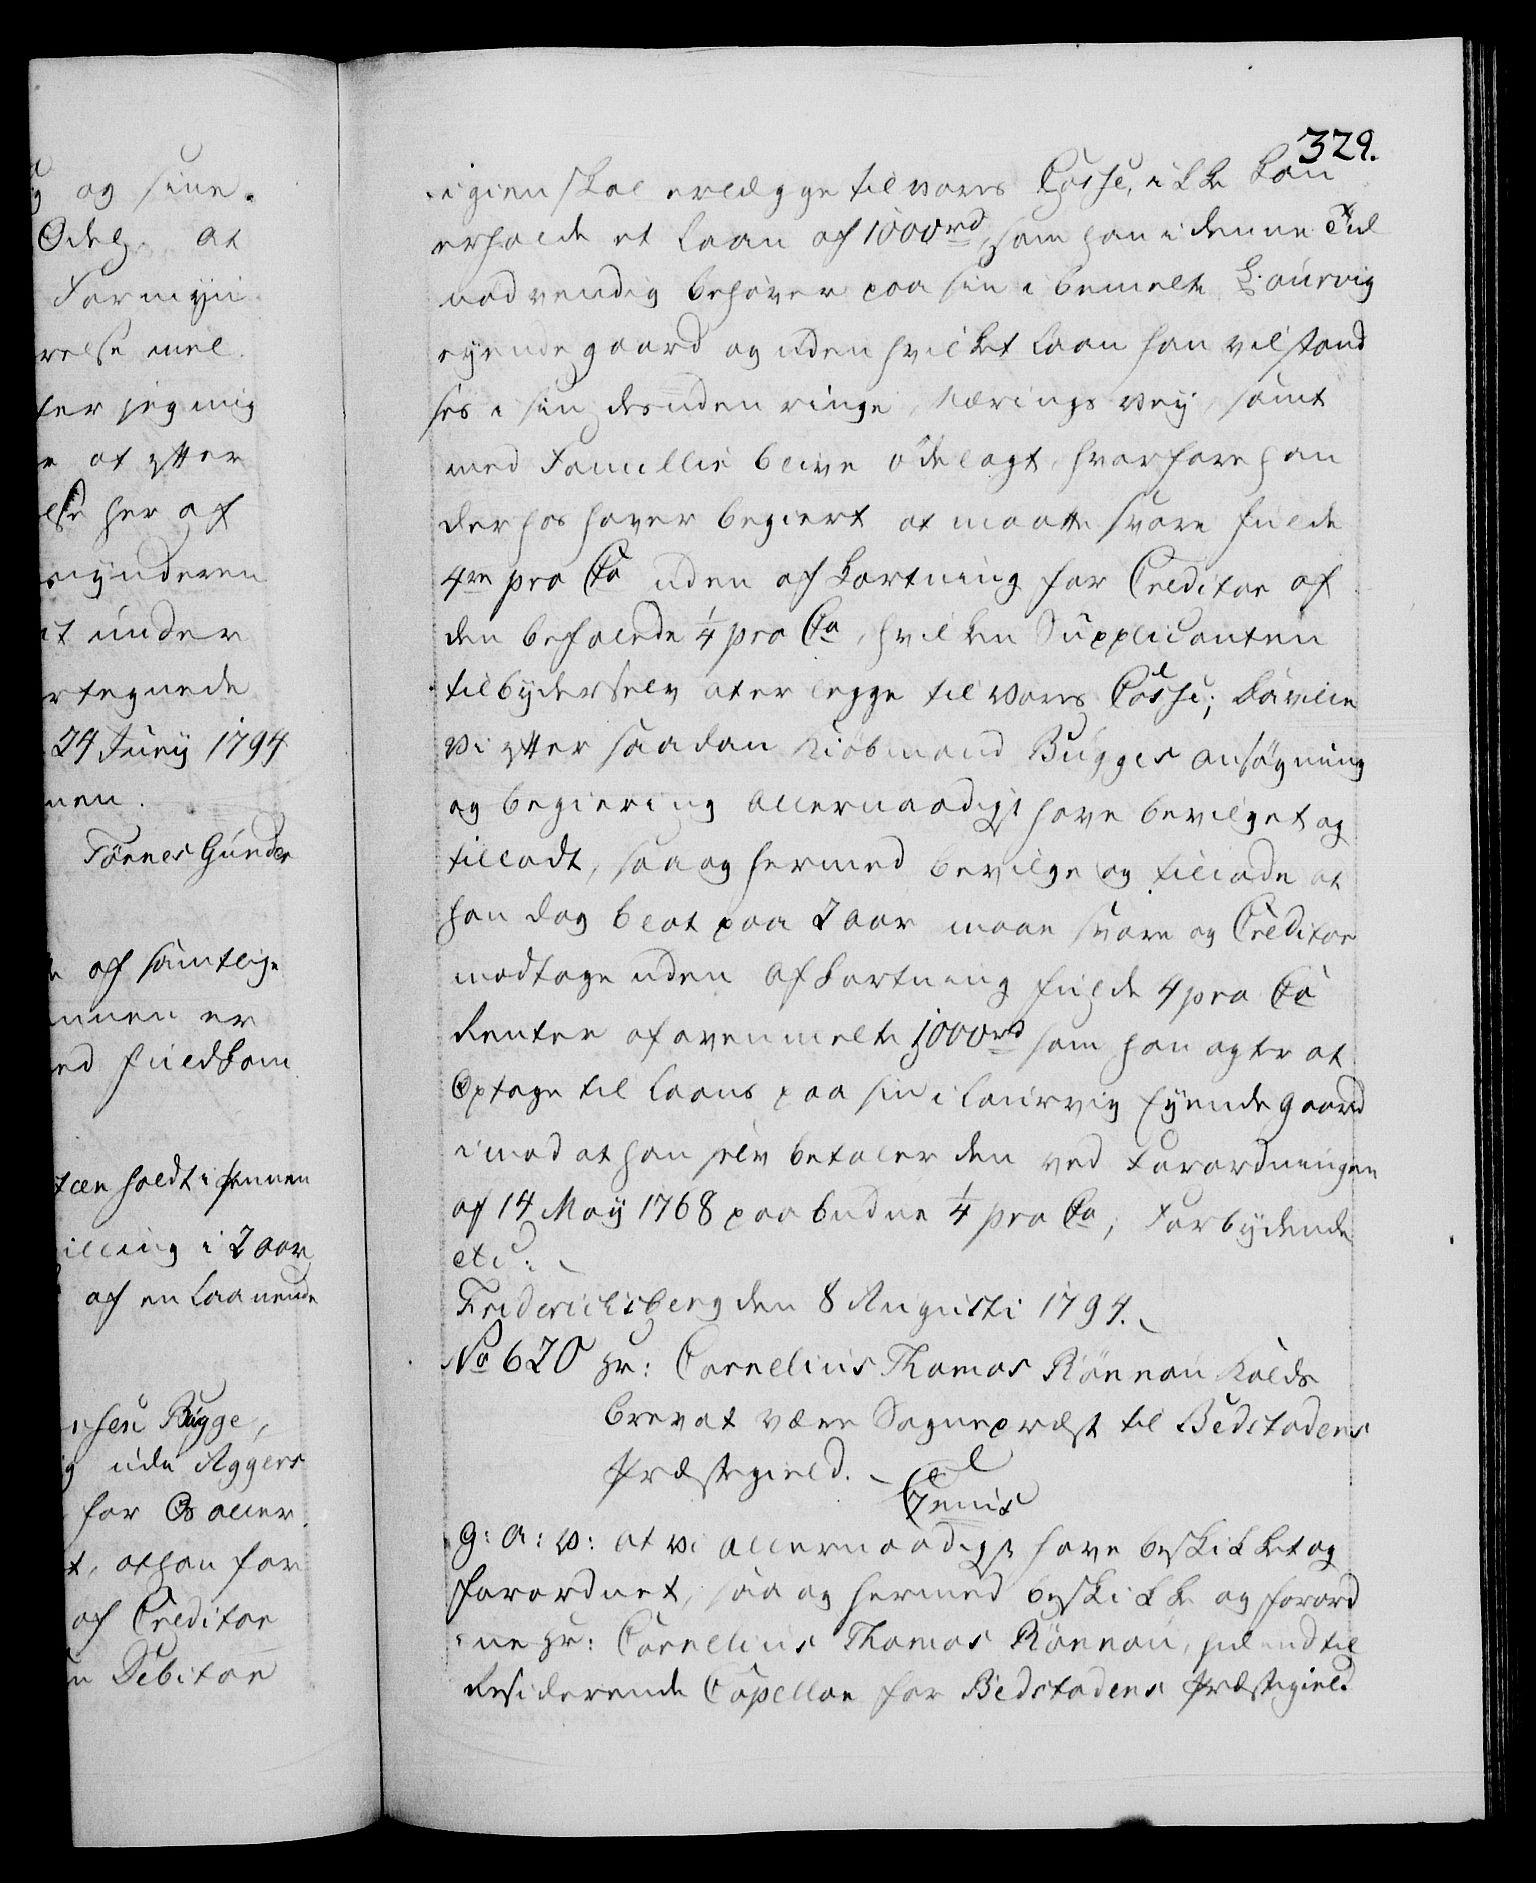 og sine.
Odelz. at
Formyn
relse mel
ter jeg mig
at ytter
else her af
mynderen
it under
rtegnede
24 Juny 1794
nen.
Tönnes Gunder
af samtlige
nnen er
ed fuldkom
holdt i hennen
illing i 2 aar
af en Laanende
nsen Bugge,
g udi Aggers
for Os aller
t, at han for
af Creditor
n Debitor
329.
igien skal erlægge til vores Casse, ikke kan
erholde et Laan af 1000rd, som han i denne Tid
nødvendig behøver paa sin i bemelte Laurvig
eyende gaard og uden hvilket Laan han vil stand
ses i sin desuden ringe Nærings vey, samt
med Famillie blive ødelagt, hvorfore han
derhos haver begiert at maatte svare fulde
4re pro Cto uden afkortning for Creditor af
den befalede 1/4 pro Cto, hvilken Supplicanten
tilbyder selv at erlegge til vores Casse; Da ville
Vi efter saadan Kiöbmand Bugges ansøgning
og begiering allernaadigst have bevilget og
tilladt, saa og hermed bevilge og tillade at
han dog blot paa 2 aar maae svare og Creditor
modtage uden afkortning fulde 4 pro Cto
Renter af ovenmelte 1000rd som han agter at
Optage til Laans paa sin i Laurvig Eyende gaard
imod at han selv betaler den ved Forordningen
af 14 May 1768 paabudne 1/4 pro Cto, Forbydende
etc:
Friderichsberg den 8 Augusti 1794.
No 620 Hr: Cornelius Thomas Rönnau Kalds
brev at være Sognepræst til Bedstadens
Præstegield.
Genus
G: A: V: at Vi allernaadigst have beskikket og
forordnet, saa og hermed beskikke og forord
ne Hr: Cornelius Thomas Rönnau, hid indtil
Residerende Capellan for Bedstadens Præstegield